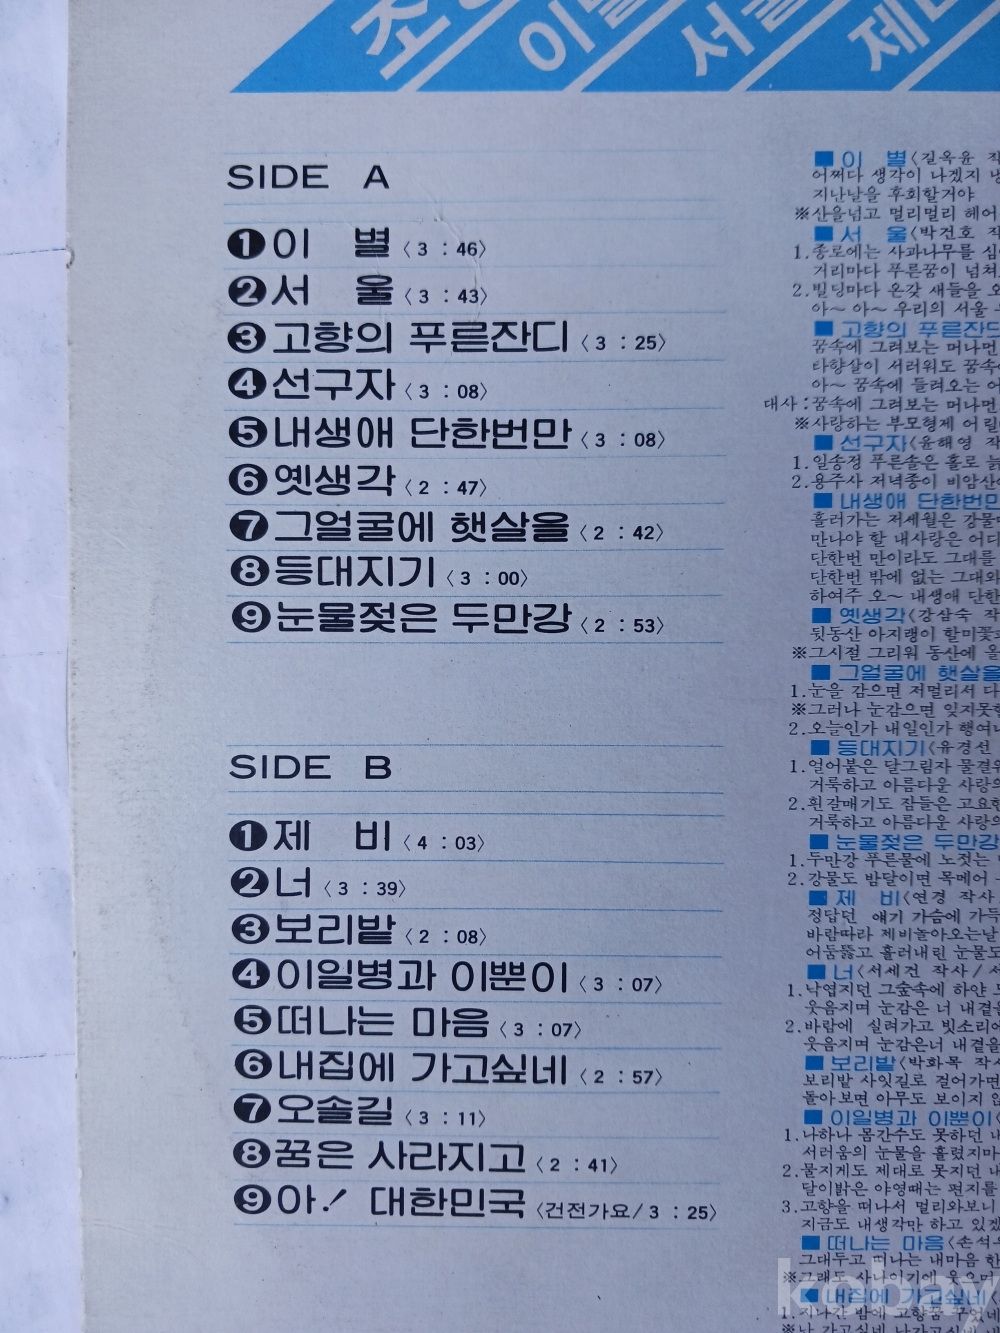 조
이별
서울
제
SIDE A
❶이 별〈3 : 46〉
❷서 울〈3 : 43〉
❸고향의 푸른잔디〈3 : 25〉
❹선구자〈3 : 08〉
❺내생애 단한번만〈3 : 08〉
❻옛생각〈2 : 47〉
❼그얼굴에 햇살을〈2 : 42〉
❽등대지기〈3 : 00〉
❾눈물젖은 두만강〈2 : 53〉
SIDE B
❶제 비〈4 : 03〉
❷너〈3 : 39〉
❸보리밭〈2 : 08〉
❹이일병과 이뿐이〈3 : 07〉
❺떠나는 마음〈3 : 07〉
❻내집에 가고싶네〈2 : 57〉
❼오솔길〈3 : 11〉
❽꿈은 사라지고〈2 : 41〉
❾아! 대한민국〈건전가요/3 : 25〉
■이 별〈길옥윤 작
어쩌다 생각이 나겠지 냉
지난날을 후회할거야
※산을넘고 멀리멀리 헤어
■서 울〈박건호 작
1.종로에는 사과나무를 심
거리마다 푸른꿈이 넘쳐
2.빌딩마다 온갖 새들을 오
아～ 아～ 우리의 서울
■고향의 푸른잔디
꿈속에 그려보는 머나먼
타향살이 서러워도 꿈속에
아～ 꿈속에 들려오는 어
대사:꿈속에 그려보는 머나먼
※사랑하는 부모형제 어릴
■선구자〈윤해영 작
1.일송정 푸른솔은 홀로 늙
2.용주사 저녁종이 비암산
■내생애 단한번만
흘러가는 저세월은 강물
만나야 할 내사랑은 어디
단한번 만이라도 그대를
단한번 밖에 없는 그대와
하여주 오～ 내생애 단한
■옛생각〈강삼숙 작
뒷동산 아지랭이 할미꽃
※그시절 그리워 동산에 올
■그얼굴에 햇살을
1.눈을 감으면 저멀리서 다
※그러나 눈감으면 잊지못
2.오늘인가 내일인가 행여나
■등대지기〈유경선
1.얼어붙은 달그림자 물결위
거룩하고 아름다운 사랑의
2.흰갈매기도 잠들은 고요한
거룩하고 아름다운 사랑의
■눈물젖은 두만강
1.두만강 푸른물에 노젓는
2.강물도 밤달이면 목메어
■제 비〈연경 작사
정답던 얘기 가슴에 가득
바람따라 제비돌아오는날
어둠뚫고 흘러내린 눈물도
■너〈서세건 작사/서
1.낙엽지던 그숲속에 하얀
웃음지며 눈감은 너 내곁을
2.바람에 실려가고 빗소리에
웃음지며 눈감은너 내곁을
■보리밭〈박화목 작사
보리밭 사잇길로 걸어가면
돌아보면 아무도 보이지 않
■이일병과 이뿐이〈
1.나하나 몸간수도 못하던 내
서러움의 눈물을 흘렸지마
2.물지게도 제대로 못지던 내
달이밝은 야영때는 편지를
3.고향을 떠나서 멀리와보니
지금도 내생각만 하고 있겠
■떠나는 마음〈손석우
그대두고 떠나는 내마음 한
※그래도 사나이기에 웃으며
■내집에 가고싶네〈
1.지나간 밤에 고향꿈 꾸었네
kobay